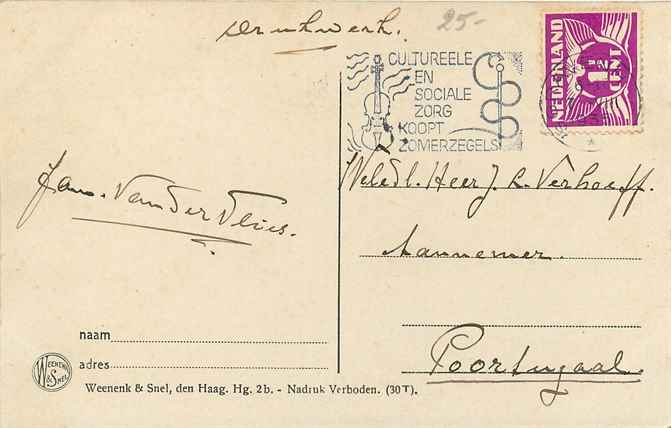 Drukwerk.
25-
CULTUREELE
EN
SOCIALE
ZORG
KOOPT
ZOMERZEGELS
NEDERLAND
1½
CENT
Jan. Van Der Vlies.
Weledl. Heer J. L. Verhoeff.
Aannemer.
Poortugaal.
naam
adres
WEENENK & SNEL
Weenenk & Snel, den Haag. Hg. 2b. - Nadruk Verboden. (30T).